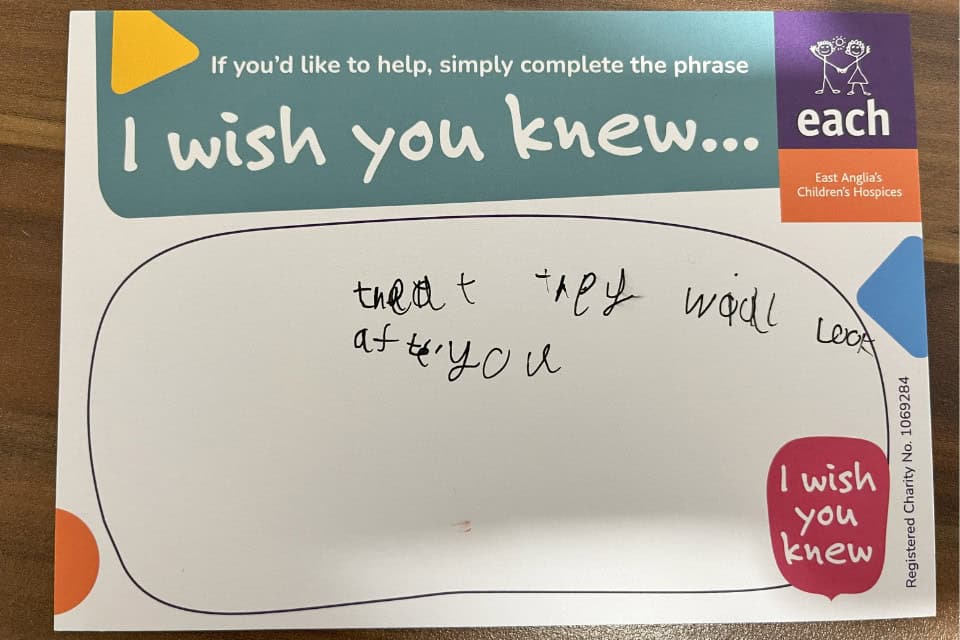 If you'd like to help, simply complete the phrase
I wish you knew...
each
East Anglia's
Children's Hospices
they will look
you
I wish
you
knew
Registered Charity No. 1069284